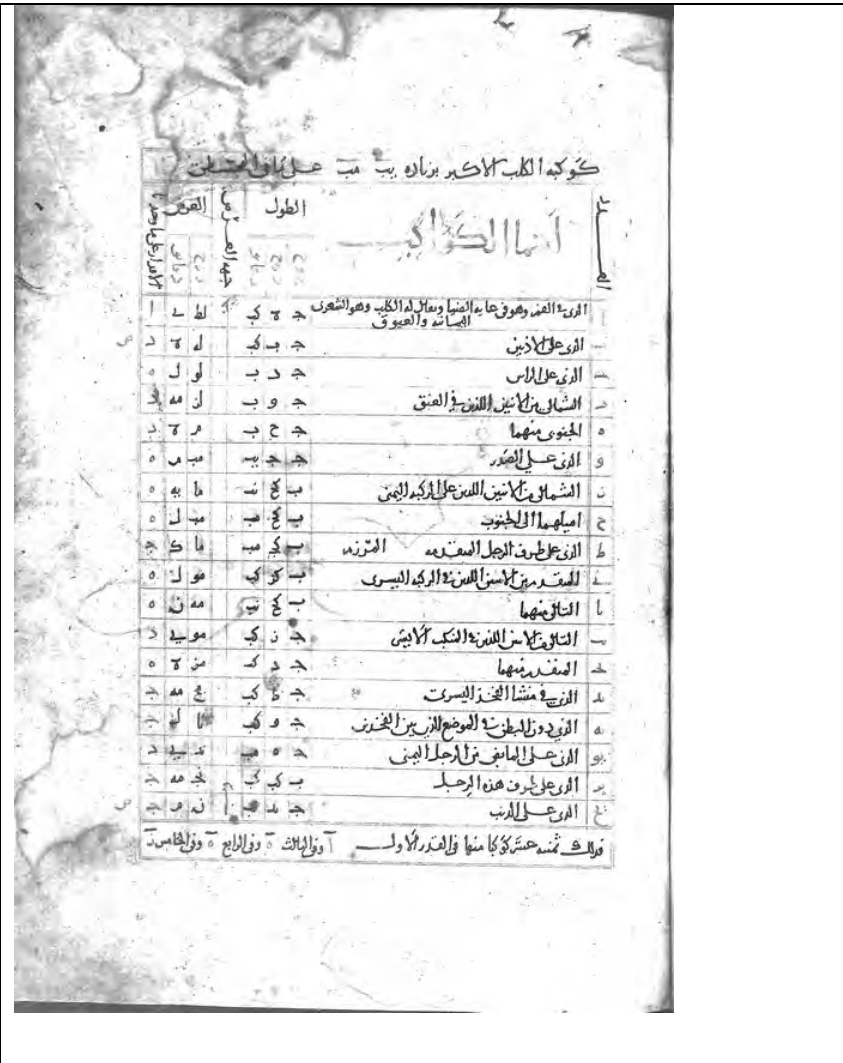 كوكبه الكلب الاكبر بزياده يب مب على ما فى المجسطى
العدد اسما الكواكب الطول جهه العرض العرض الاقدار على ما وجد
بروج درج دقائق درج دقائق
ا الذى فى الفم وهو فى غايه الضيا ويقال له الكلب وهو الشعرى ج ه كب لط ى ا
اليمانيه والعيوق
ب الذى على الاذنين ج ب كب له ه د
ج الذى على الراس ج د ب لو ل ه
د الشمالى من الاثنين اللذين فى العنق ج و ب لز مه
ه الجنوبى منهما ج ح ب م ه د
و الذى على الصدر ج ج يب مب م ه
ز الشمالى من الاثنين اللذين على الركبه اليمنى ب كح نب ما يه ه
ح اميلهما الى الجنوب ب كح مب مب ل ه
ط الذى على طرف الرجل المتقدمه المرزم ب كج مب ما ك ج
ى المتقدم من الاثنين اللذين فى الركبه اليسرى ب كز كب مو ل ه
يا التالى منهما ب كح نب مه ن ه
يب التالى من الاثنين اللذين فى المنكب الايسر ج ز كب مو ى د
يج المتقدم منهما ج د كب مز ه ه
يد الذى فى منشا الفخذ اليسرى ج ط كب مح مه ج
يه الذى دون البطن فى الموضع الذى بين الفخذين ج و كب نا ل ج
يو الذى على المابض من الرجل اليمنى ج ه مب نه ى د
يز الذى على طرف هذه الرجل ب كب كب نج مه ج
يح الذى على الذنب ج يد مب ن م ج
فذلك ثمنيه عشر كوكبا منها فى القدر الاول ا وفى الثالث ه وفى الرابع ه وفى الخامس ز